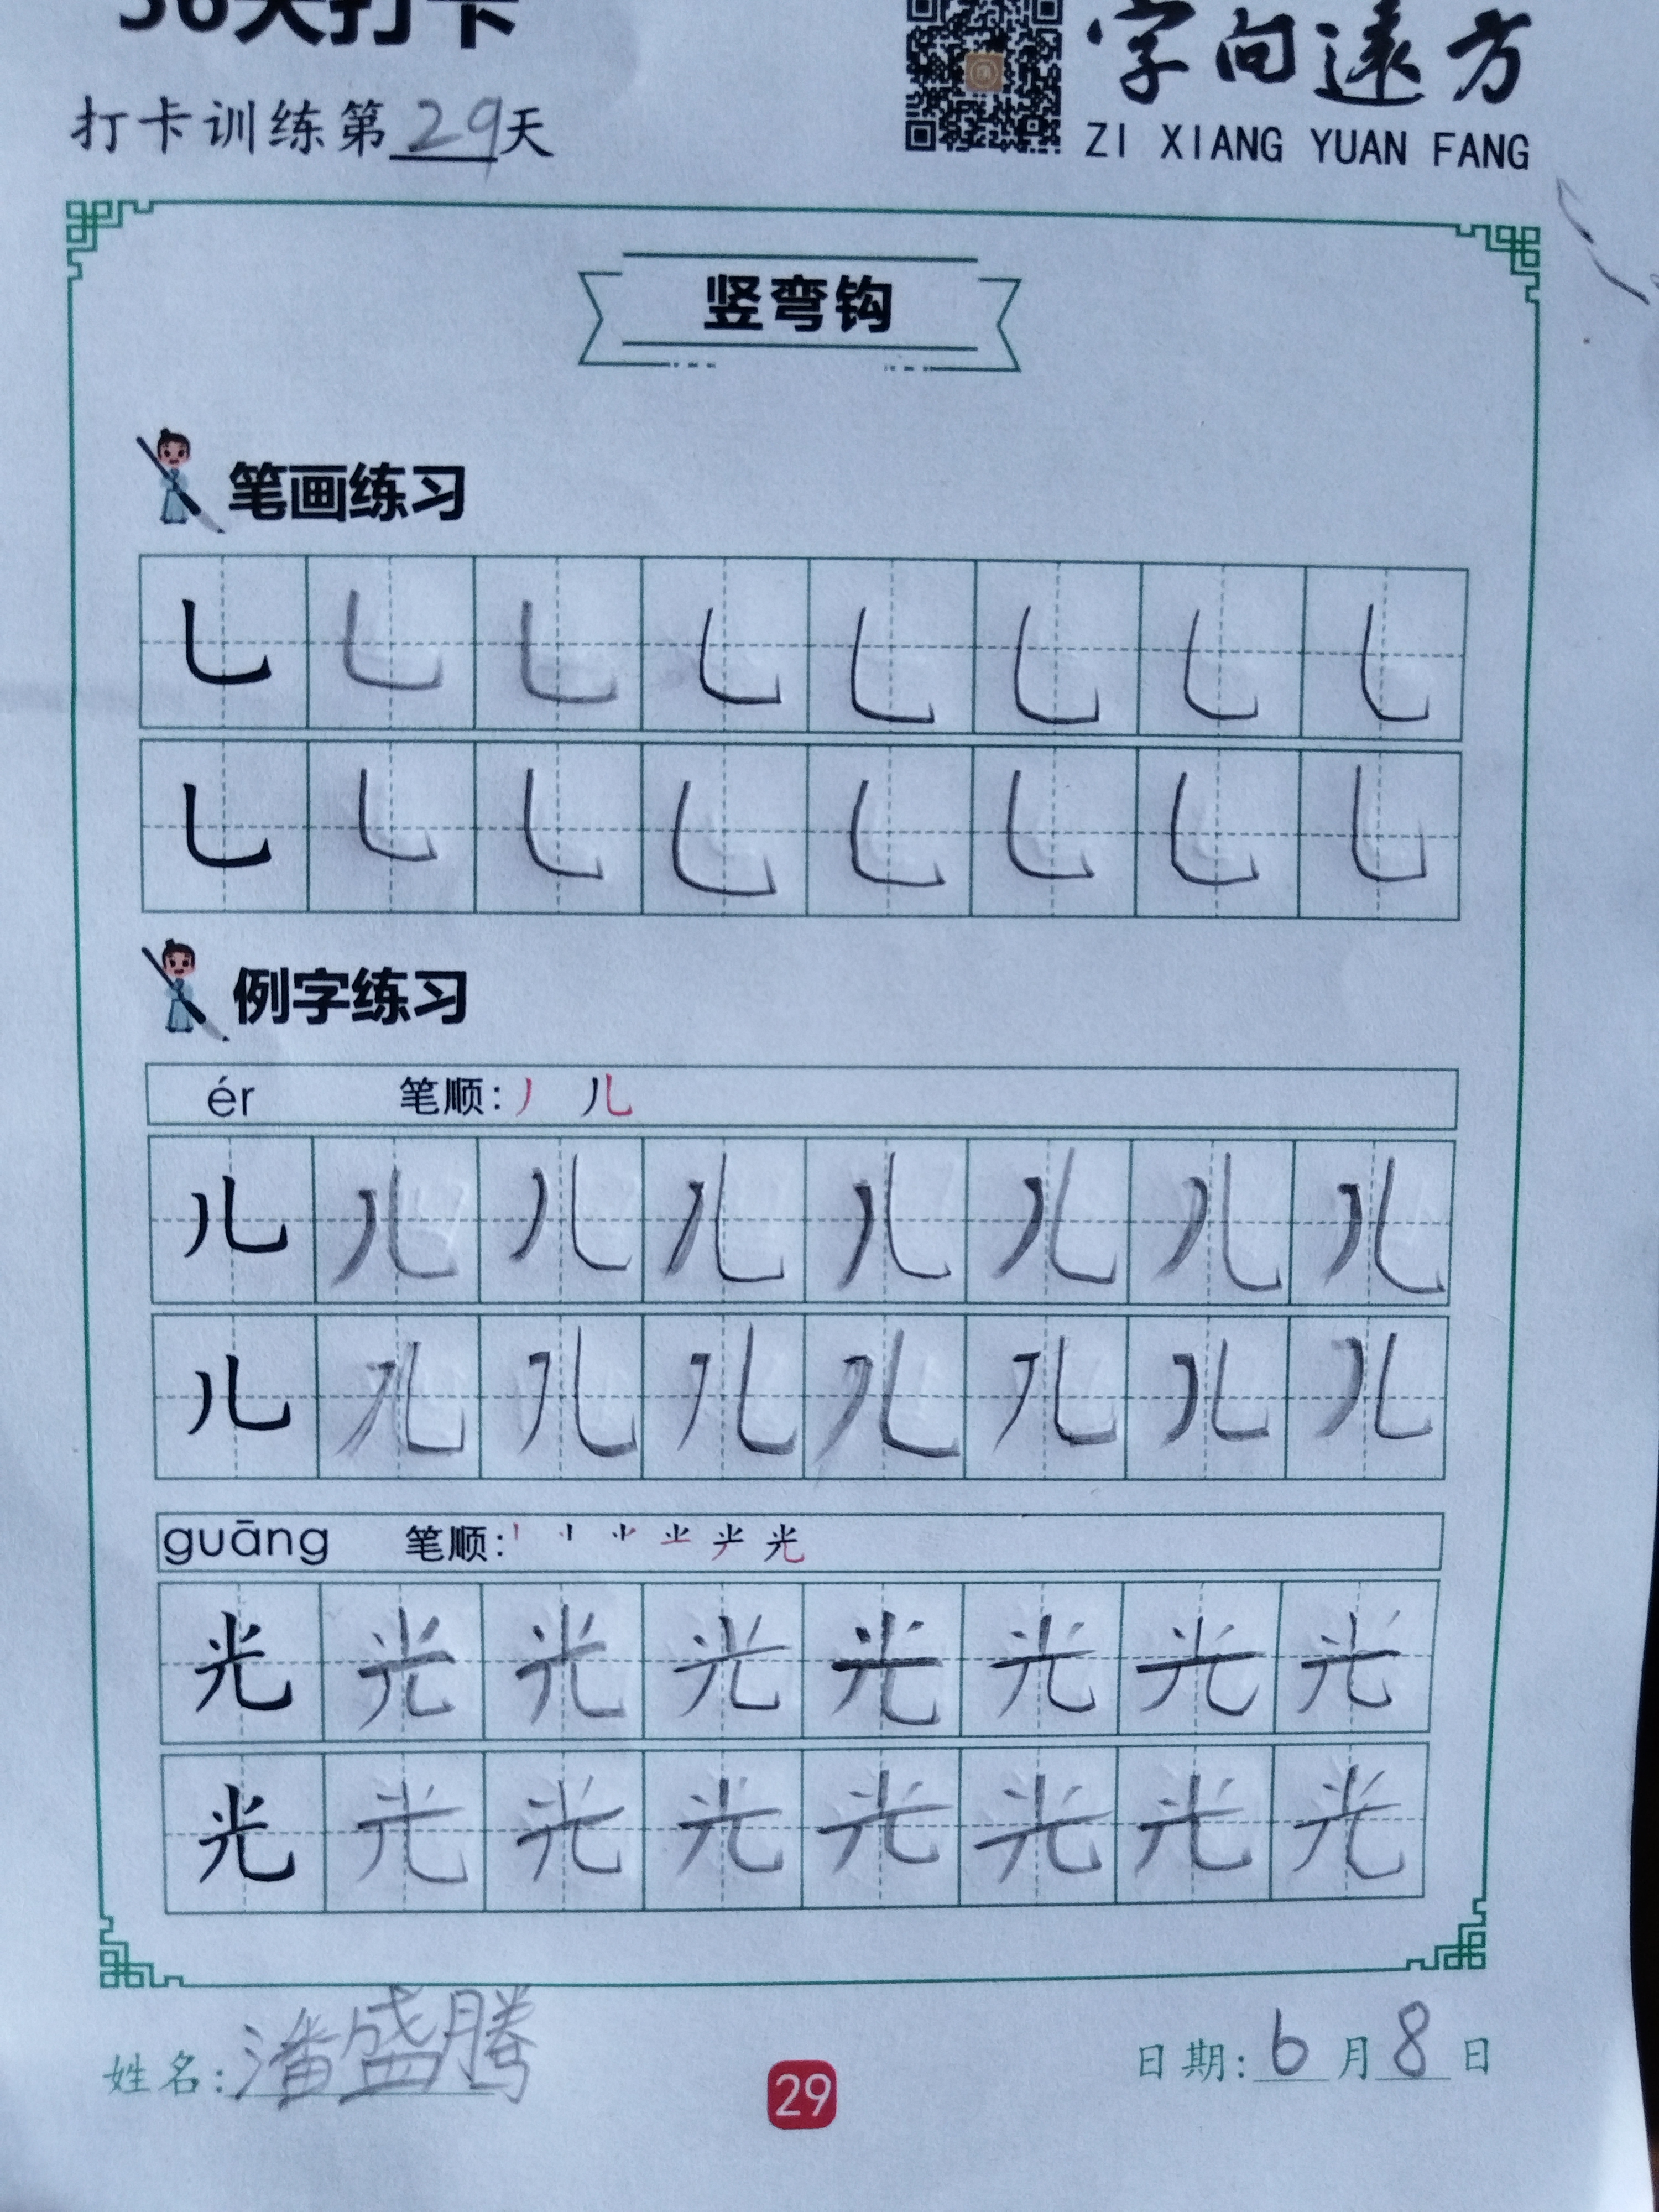 天打卡
字向遠方
打卡训练第29天
ZI XIANG YUAN FANG
竖弯钩
笔画练习
乚 乚 乚 乚 乚 乚 乚 乚
乚 乚 乚 乚 乚 乚 乚 乚
例字练习
ér 笔顺: 丿 儿
儿 儿 儿 儿 儿 儿 儿 儿
儿 儿 儿 儿 儿 儿 儿 儿
guāng 笔顺: 光
光 光 光 光 光 光 光 光
光 光 光 光 光 光 光 光
姓名: 潘盛腾
日期: 6月8日
29